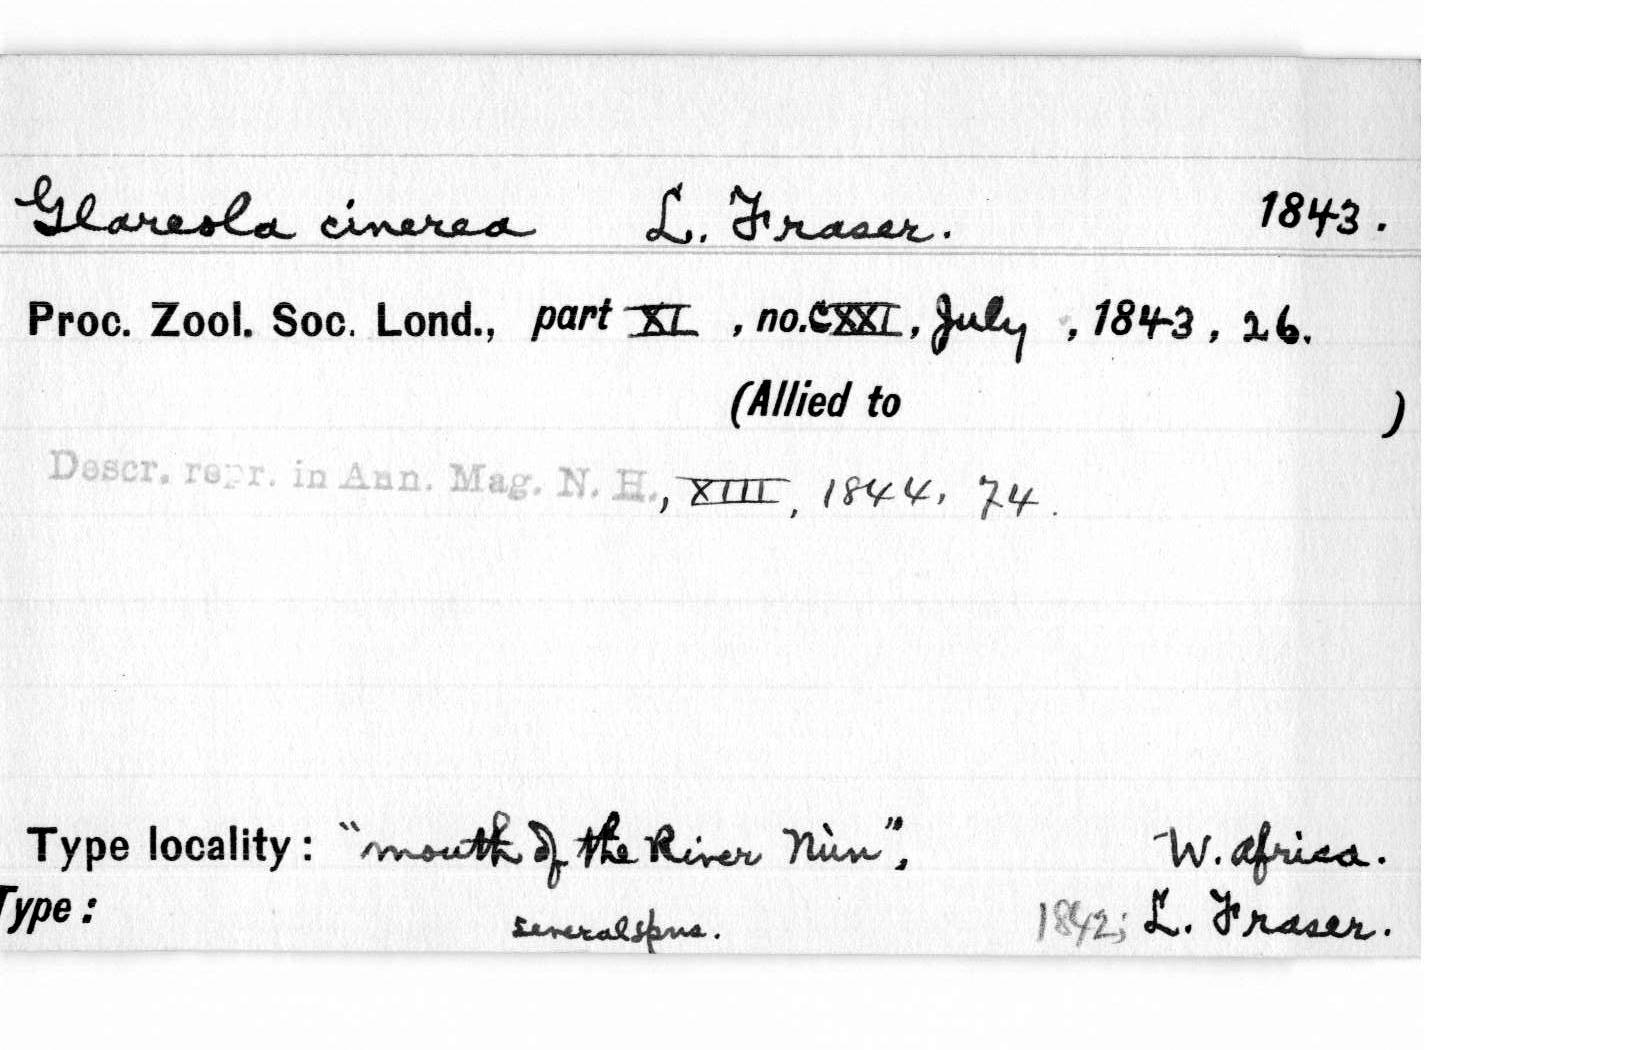 Glareola cinerea L. Fraser. 1843.
Proc. Zool. Soc. Lond., part XI, no. CXXI, July, 1843, 26.
(Allied to )
Descr. repr. in Ann. Mag. N. H., XIII, 1844, 74.
Type locality: "mouth of the River Nùn", W. Africa.
Type: several spns. 1842; L. Fraser.